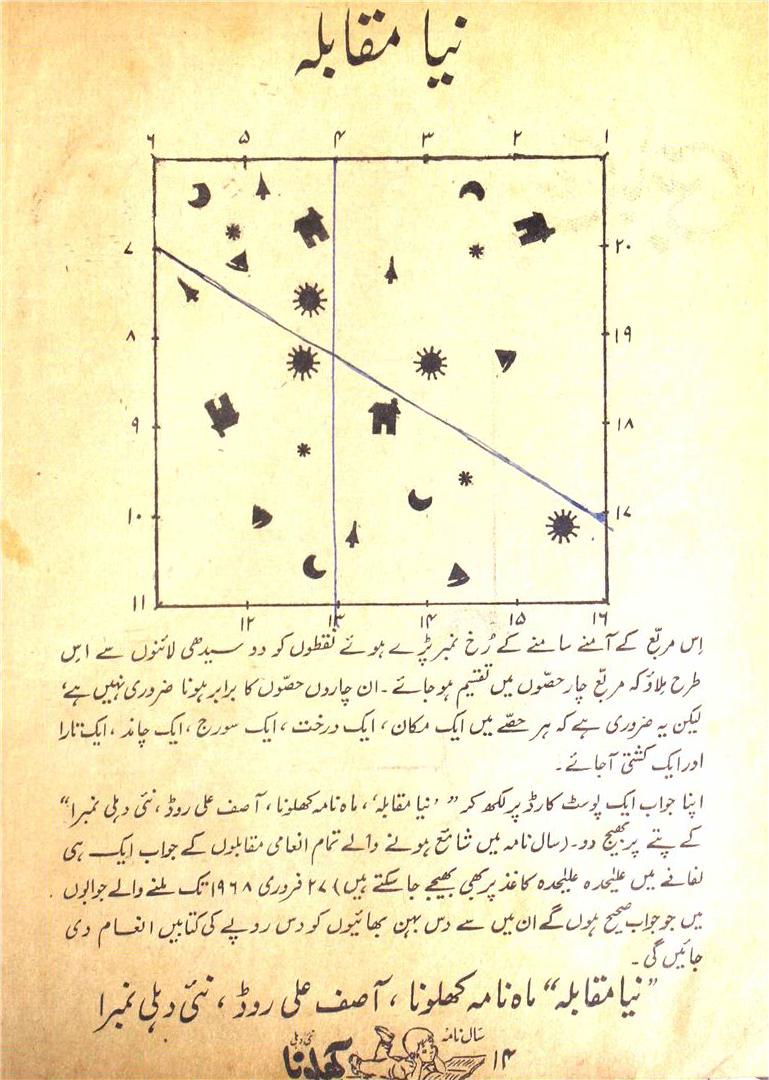 نیا مقابلہ
۶ ۵ ۴ ۳ ۲ ۱
۷ ۲۰
۸ ۱۹
۹ ۱۸
۱۰ ۱۷
۱۱ ۱۲ ۱۳ ۱۴ ۱۵ ۱۶
اِس مربّع کے آمنے سامنے کے رُخ نمبر پڑے ہوئے نقطوں کو دو سیدھی لائنوں سے اس
طرح ملاؤ کہ مربّع چار حصّوں میں تقسیم ہو جائے۔ ان چاروں حصّوں کا برابر ہونا ضروری نہیں ہے،
لیکن یہ ضروری ہے کہ ہر حصّے میں ایک مکان، ایک درخت، ایک سورج، ایک چاند، ایک تارا
اور ایک کشتی آ جائے۔
اپنا جواب ایک پوسٹ کارڈ پر لکھ کر ”’نیا مقابلہ‘، ماہ نامہ کھلونا، آصف علی روڈ، نئی دہلی نمبر۱“
کے پتے پر بھیج دو۔ (سال نامہ میں شائع ہونے والے تمام انعامی مقابلوں کے جواب ایک ہی
لفافے میں علیٰحدہ علیٰحدہ کاغذ پر بھی بھیجے جا سکتے ہیں) ۲۷ فروری ۱۹۶۸ تک ملنے والے جوابوں
میں جو جواب صحیح ہوں گے ان میں سے دس بہن بھائیوں کو دس روپے کی کتابیں انعام دی
جائیں گی۔
”نیا مقابلہ“ ماہ نامہ کھلونا، آصف علی روڈ، نئی دہلی نمبر۱
۱۴ سال نامہ کھلونا نئی دہلی